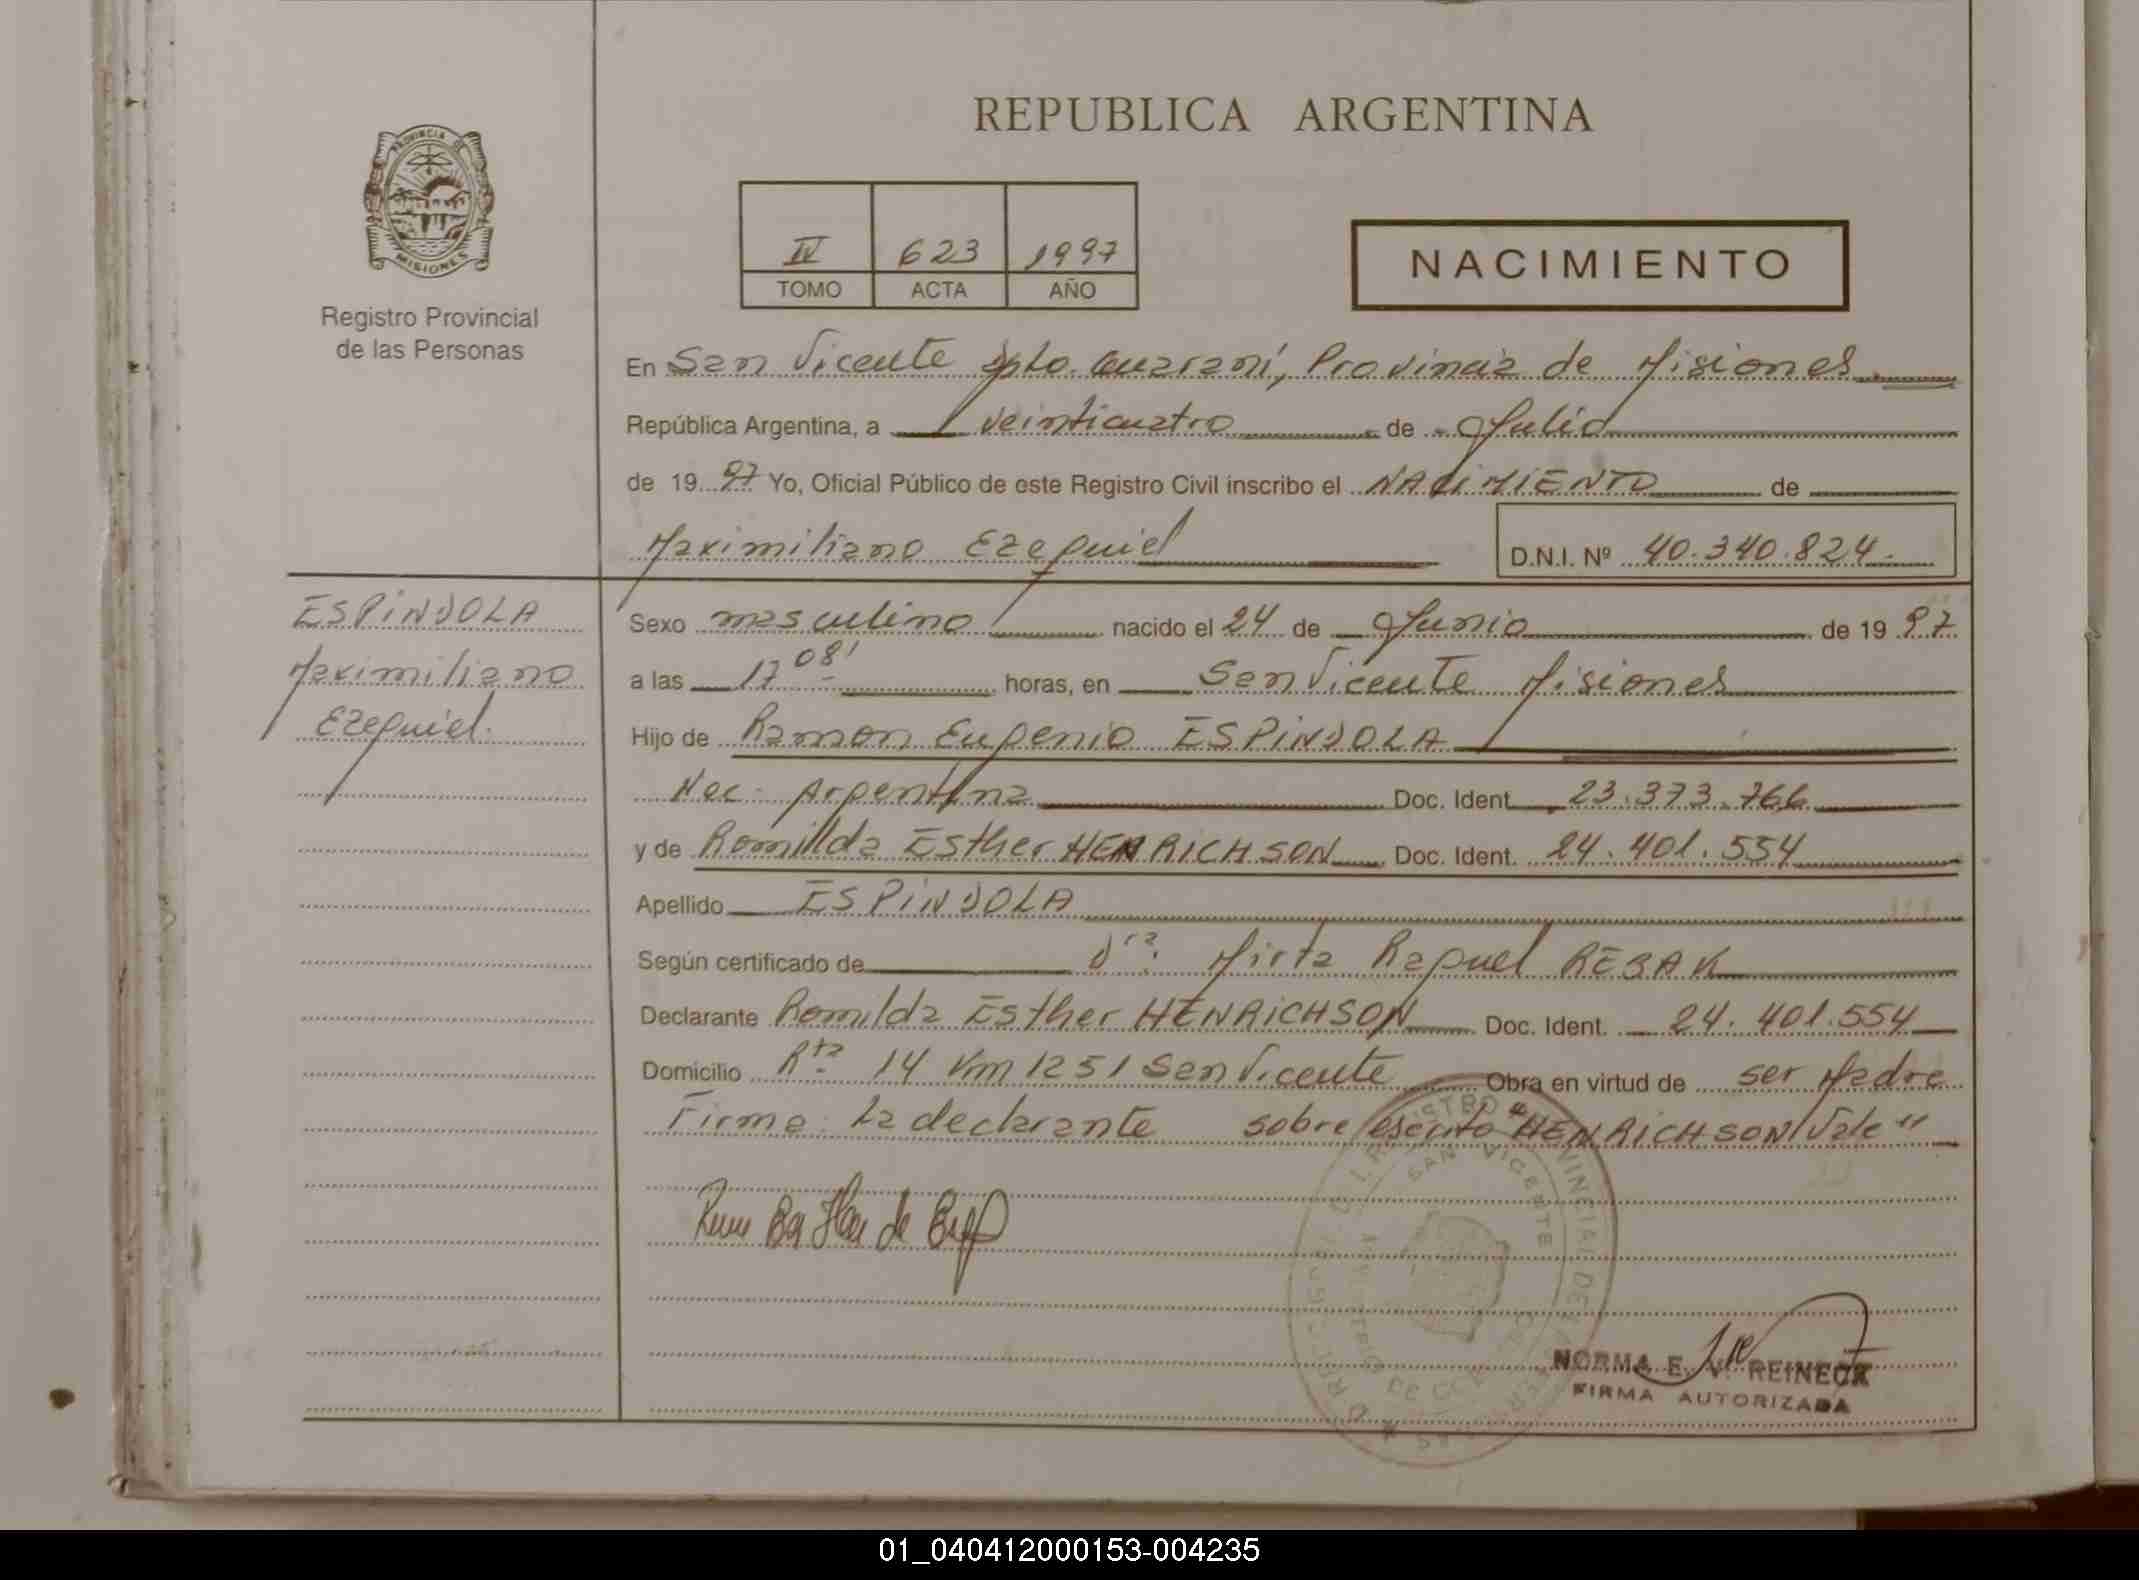 REPUBLICA ARGENTINA
PROVINCIA DE
MISIONES
Registro Provincial
de las Personas
IV 623 1997
TOMO ACTA AÑO
NACIMIENTO
En San Vicente Dpto. Guaraní, Provincia de Misiones
República Argentina, a veinticuatro de Julio
de 19 97 Yo, Oficial Público de este Registro Civil inscribo el NACIMIENTO de
Maximiliano Ezequiel D.N.I. Nº 40.340.824.
ESPINDOLA
Maximiliano
Ezequiel.
Sexo masculino nacido el 24 de Junio de 19 97
a las 17 08' horas, en San Vicente Misiones
Hijo de Ramon Eugenio ESPINDOLA
Nac. Argentina Doc. Ident. 23.373.766
y de Romilda Esther HENRICHSON Doc. Ident. 24.401.554
Apellido ESPINDOLA
Según certificado de Dra. Mirta Raquel REBAK
Declarante Romilda Esther HENRICHSON Doc. Ident. 24.401.554
Domicilio Rta. 14 Km 1251 San Vicente Obra en virtud de ser Madre
Firma: La declarante sobre escrito "HENRICHSON Vale"
SAN VICENTE
NORMA E. V. REINECK
FIRMA AUTORIZADA
01_040412000153-004235